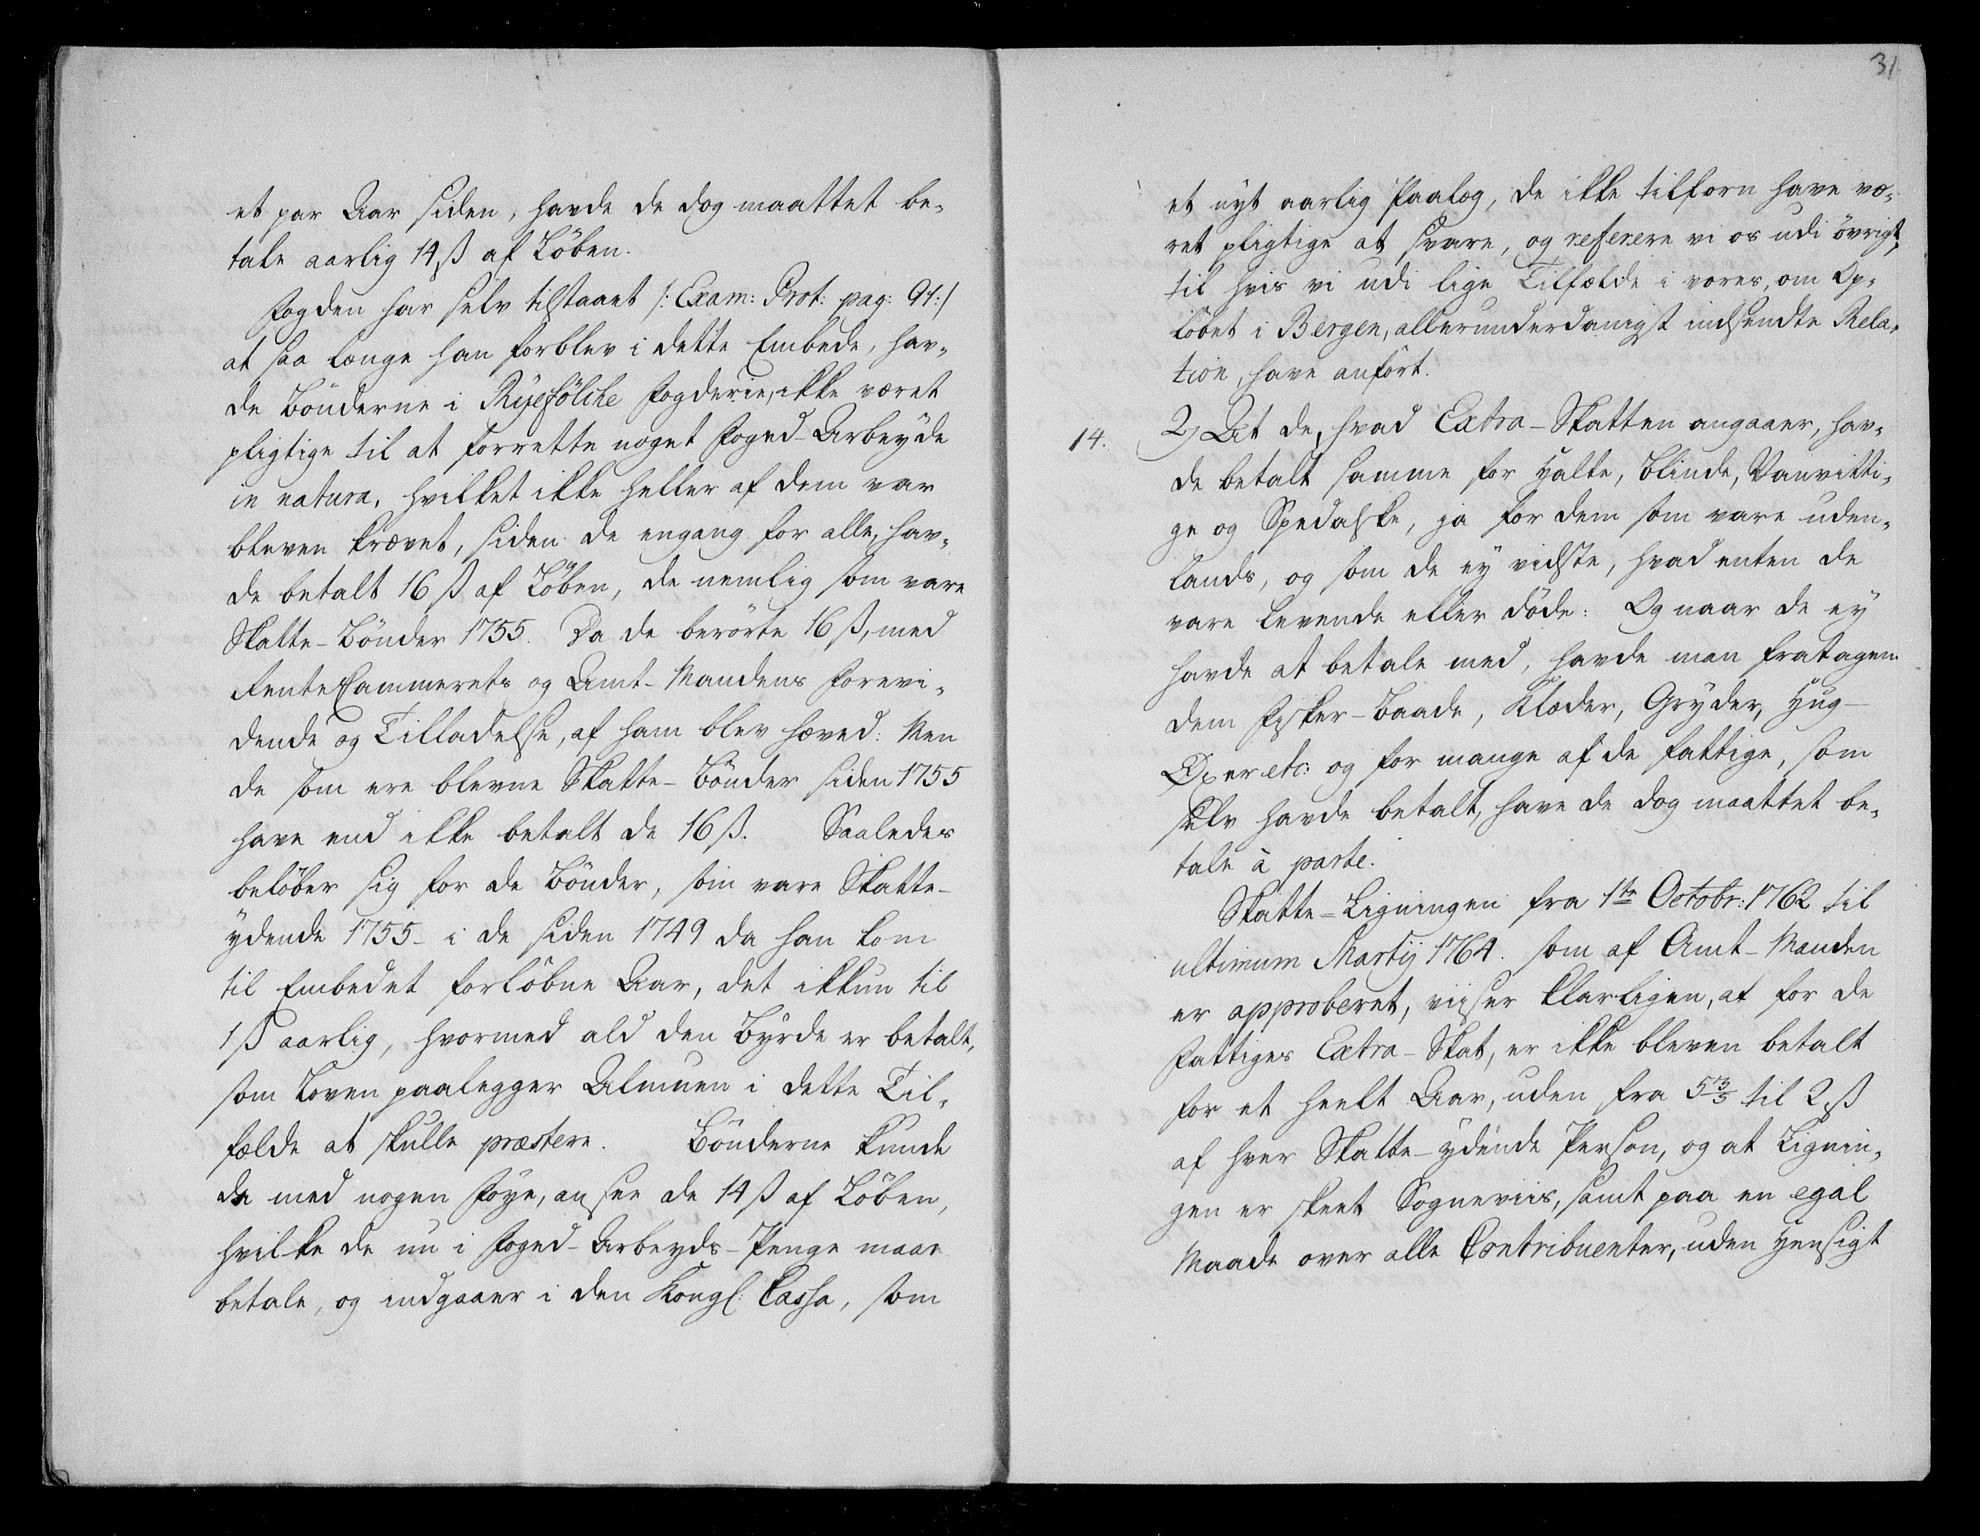 et par Aar siden, havde de dog maattet be-
tale aarlig 14 ß af Löben.
Fogden har selv tilstaaet /: Exam: Prot: pag: 91:/
at saa længe han forblev i dette Embede, hav-
de Bönderne i Ryefölche Fogderie, ikke været
pligtige til at forrette noget Foged-Arbeyde
in natura, hvilket ikke heller af dem var
bleven krævet, siden de engang for alle, hav-
de betalt 16 ß af Löben, de nemlig som vare
Skatte-Bönder 1755. Da de berörte 16 ß, med
RenteCammerets og Amt-Mandens Forevi-
dende og Tilladelse, af ham blev hæved: Men
de som ere blevne Skatte-Bönder siden 1755
have end ikke betalt de 16 ß. Saaledes
belöber sig for de Bönder, som vare Skatte-
ydende 1755- i de siden 1749 da han kom
til Embedet forlöbne Aar, det ikkun til
1 ß aarlig, hvormed ald den Byrde er betalt,
som Loven paalegger Almuen i dette Til-
fælde at skulle præstere. Bönderne kunde
da med nogen Föye, ansee de 14 ß af Löben,
hvilke de nu i Foged-Arbeyds-Penge maae
betale, og indgaaer i den Kongl: Cassa, som
31
et nyt aarlig Paalæg, de ikke tilforn have væ-
ret pligtige at svare, og referere vi os udi övrigt,
til hvis vi udi lige Tilfælde i vores, om Op-
löbet i Bergen, allerunderdanigst indsendte Rela-
tion, have anfört.
14. 2) At de, hvad Extra-Skatten angaaer, hav-
de betalt samme for Halte, Blinde, Vanvitti-
ge og Spedalske, ja for dem som vare uden-
lands, og som de ey vidste, hvad enten de
vare levende eller döde: Og naar de ey
havde at betale med, havde man fratagen
dem Fisker-Baade, Klæder, Gryder, Hug-
Öxer etc: og for mange af de fattige, som
selv havde betalt, have de dog maattet be-
tale à parte.
Skatte-Ligningen fra 1te Octobr: 1762 til
ultimum Martij 1764. som af Amt-Manden
er approberet, viiser klarligen, at for de
Fattiges Extra-Skat, er ikke bleven betalt
for et heelt Aar, uden fra 5 3/5 til 2 ß
af hver Skatte-ydende Person, og at Lignin-
gen er skeet Sogneviis, samt paa en egal
Maade over alle Contribuenter, uden Hensigt